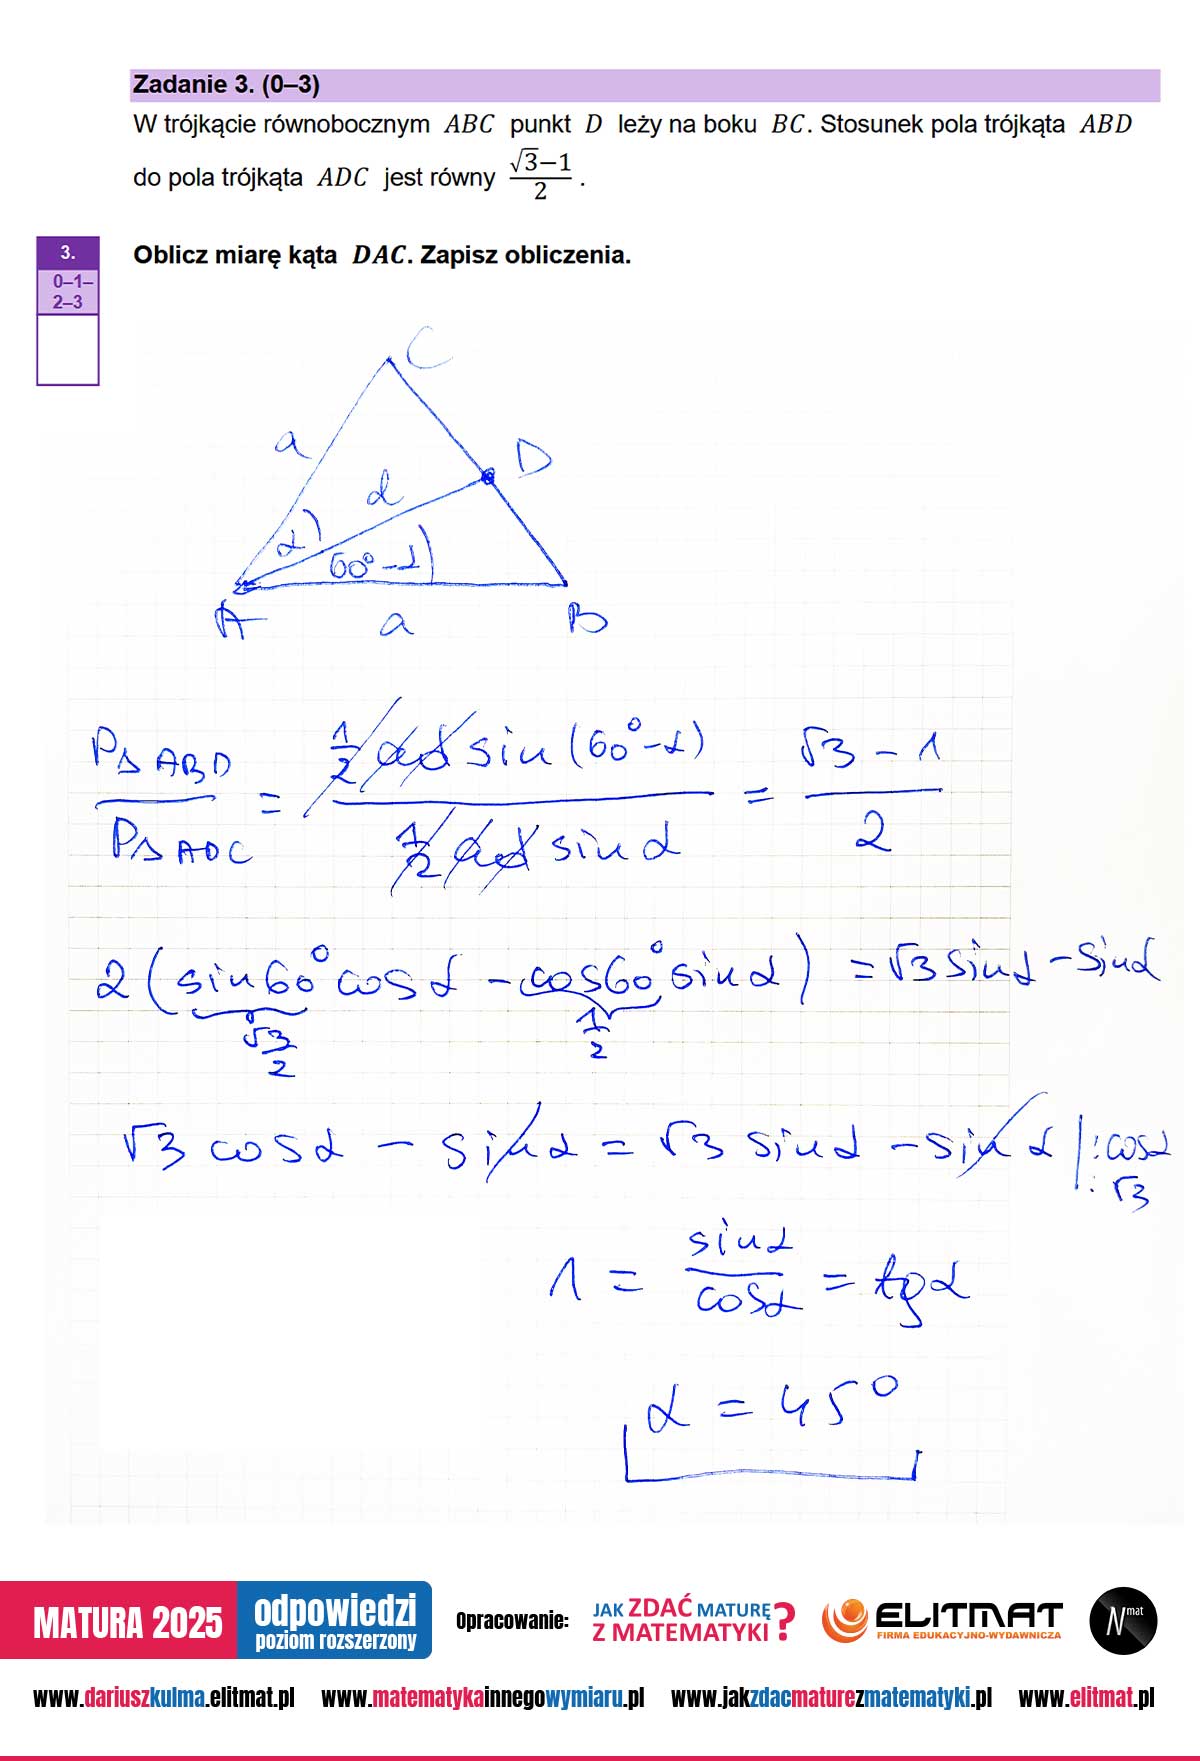 Zadanie 3. (0–3)
W trójkącie równobocznym ABC punkt D leży na boku BC. Stosunek pola trójkąta ABD
do pola trójkąta ADC jest równy (√3−1)/2 .
3.
0–1–
2–3
Oblicz miarę kąta DAC. Zapisz obliczenia.
C
a
D
d
α
60°-α
A
a
B
P△ABD / P△ADC = (1/2 ad sin(60°-α)) / (1/2 ad sin α) = (√3 - 1) / 2
2(sin60° cos α - cos60° sin α) = √3 sin α - sin α
√3/2
1/2
√3 cos α - sin α = √3 sin α - sin α |: cos α
: √3
1 = sin α / cos α = tg α
α = 45°
MATURA 2025
odpowiedzi
poziom rozszerzony
Opracowanie:
JAK ZDAĆ MATURĘ
Z MATEMATYKI ?
ELITMAT
FIRMA EDUKACYJNO-WYDAWNICZA
Nmat
www.dariuszkulma.elitmat.pl www.matematykainnegowymiaru.pl www.jakzdacmaturezmatematyki.pl www.elitmat.pl